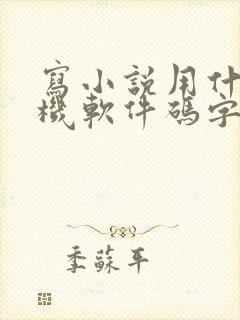 寫小説用什
機軟件碼字
季蘇平